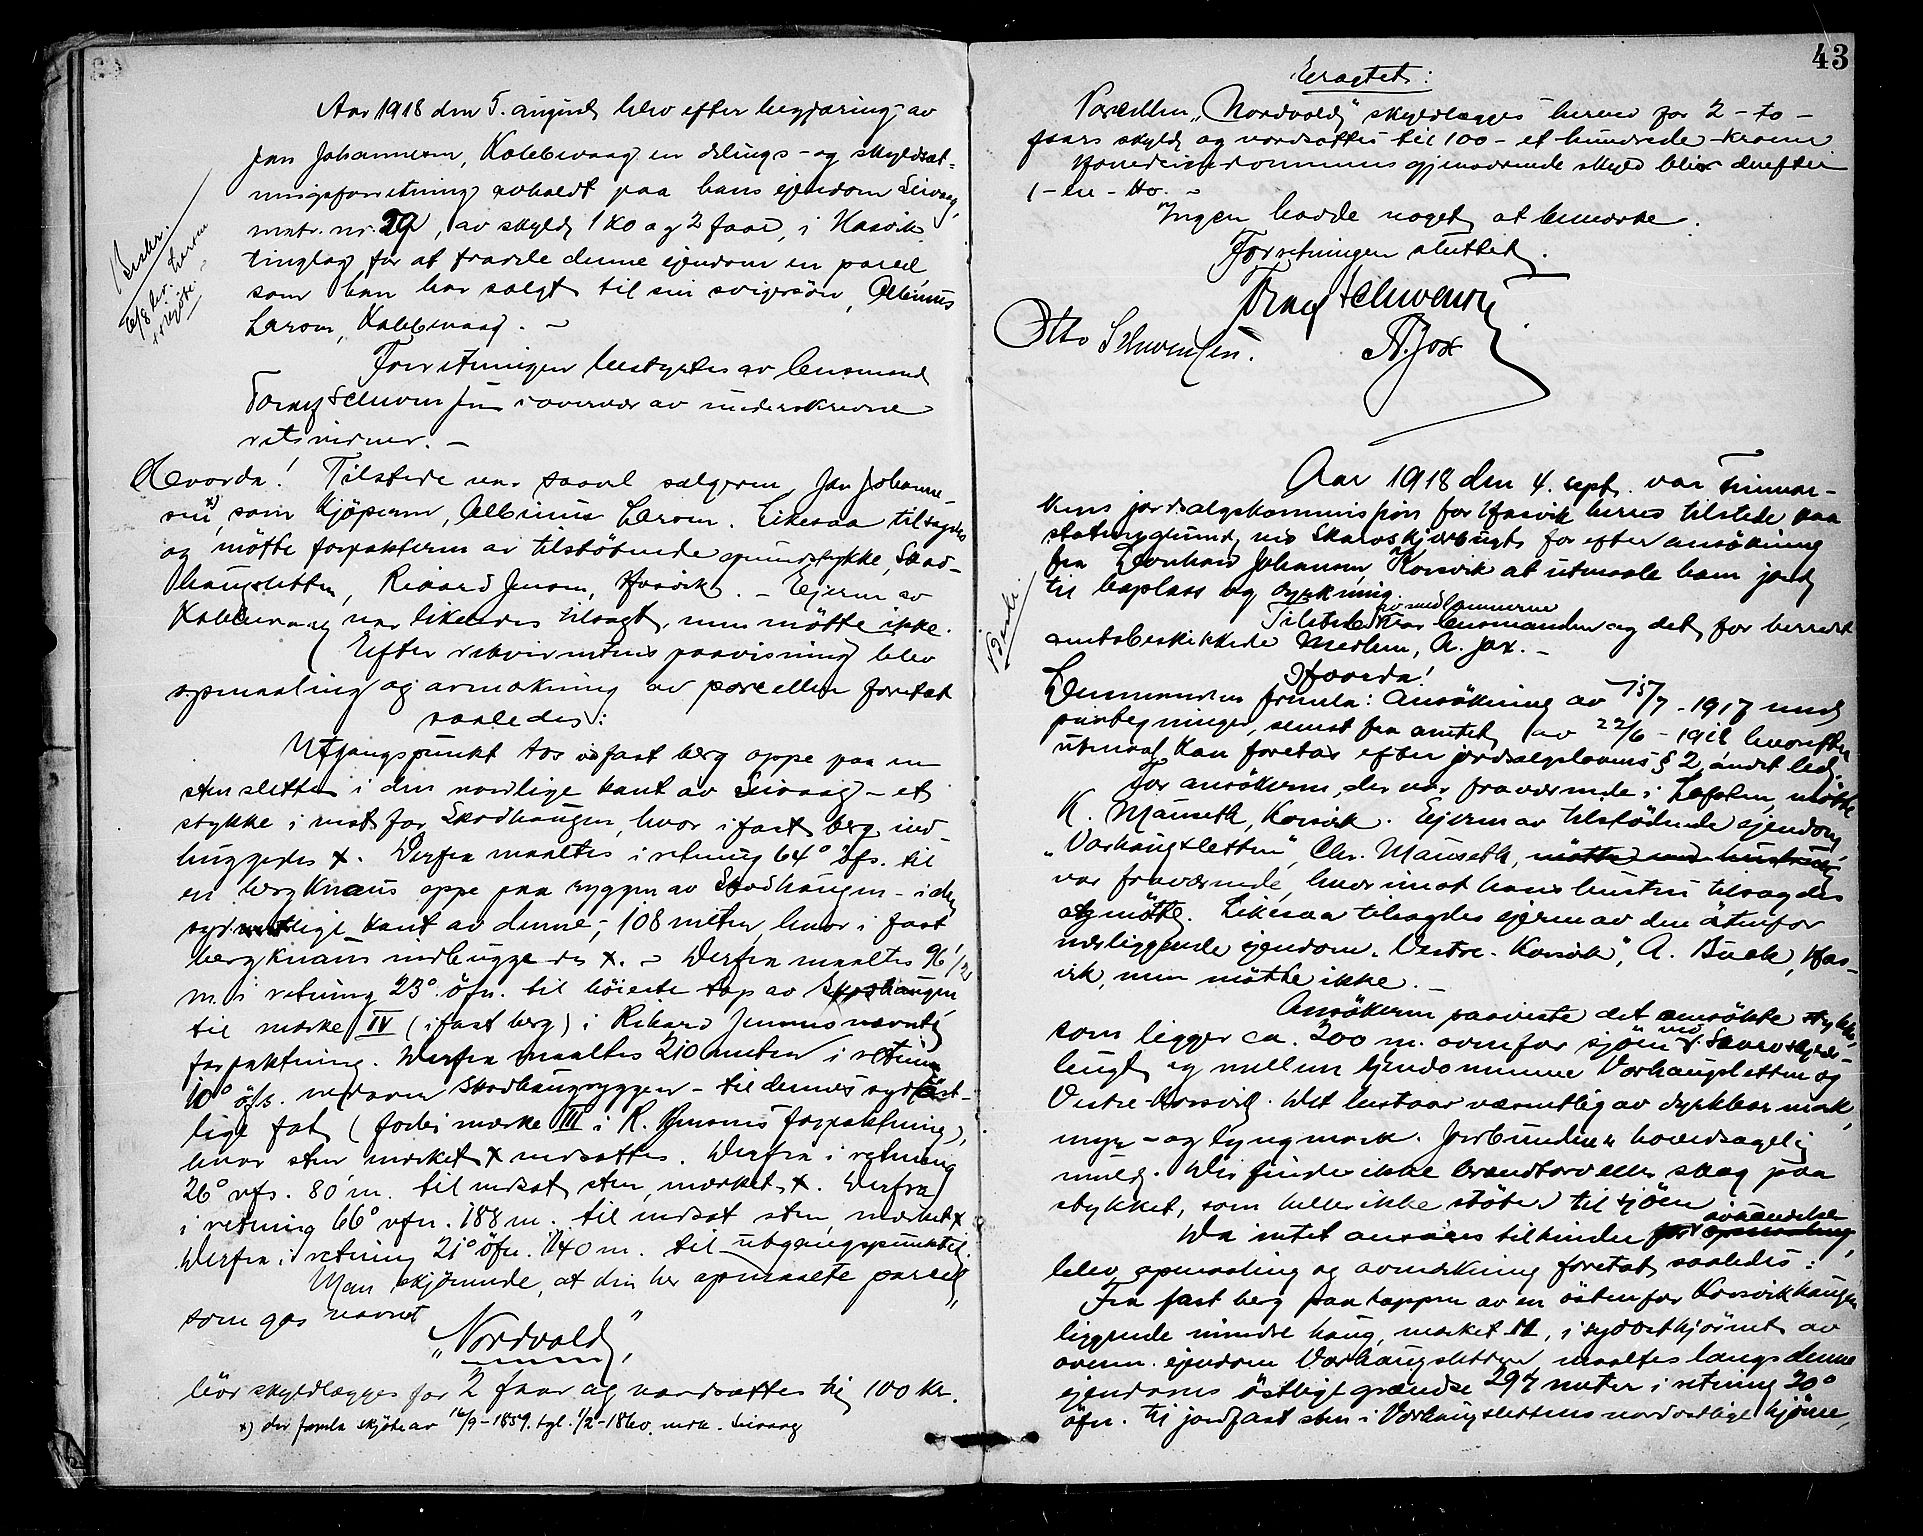 Aar 1918 den 5. august blev efter begjæring av
Jan Johannesen, Kobbevaag en delings- og skyldsæt-
ningsforretning avholdt paa hans eiendom Seivaag,
matr. nr. 29, av skyld 1 ko og 2 faar, i Hasvik
tinglag for at fradele denne ejendom en parcel
som han har solgt til sin svigersøn, Albinus
Larsen, Kobbevaag. –
Forretningen bestyrtes av lensmand
Schwensen jun i overvær av underskrevne
retsvidner. –
Hvorda! Tilstede var saavel sælgeren, Jan Johanne-
sen x), som kjöperen, Albinus Larsen. Likesaa tilsagdes
og mötte forpakteren av tilstötende grundstykke, Skod-
haugsletten, Rikard Jensen, Hasvik. – Ejeren av
Kobbevaag var likeledes tilsagt, men mötte ikke.
Efter rekvirentens paavisning blev
opmaaling og avmerkning av parcellen foretat
saaledes:
Utgangspunkt tos i fast berg oppe paa en
sten slette i den nordlige kant av Seivaag – et
stykke i vest for Skodhaugen, hvor i fast berg ind-
huggedes x. Derfra maaltes i retning 64° öfs. til
en bergknaus oppe paa ryggen av Skodhaugen – i den
syd lige kant av denne –, 108 meter, hvor i fast
bergknaus indhugge des x. – Derfra maaltes 96 1/2
m. i retning 23° öfn. til höieste top av Skodhaugen
til merke IV (i fast berg) i Rikard Jensens nævnte
forpaktning. Derfra maaltes 210 meter i retning
10° öfs. nedover Skodhaugryggen – til dennes sydöst-
lige fot (forbi merke III i R. Jensens forpaktning),
hvor sten merket x nedsattes. Derfra i retning
26° vfs. 80 m. til nedsat sten, merket x. Derfra
i retning 66° vfn. 188 m. til nedsat sten merket x
Derfra i retning 21° öfn. 140 m. til utgangspunktet.
Man skjönnede, at den her opmaalte parcel
som gas navnet
„Nordvold“,
bör skyldlægges for 2 faar og værdsættes til 100 kr.
x) der fremla skjöte av 16/9–1859. tgl. 1/2–1860. merk. Seivaag
43
Eragtet:
Parcellen „Nordvold“ skyldlægges herved for 2 – to –
faars skyld og værdsættes til 100 – et hundrede – kroner
Hovedeiendommens gjenværende skyld blir derefter
1 – en – ko. –
Ingen hadde noget at bemerke.
Forretningen sluttet.
Schwensen
Otto Schwensen. A. Jox
Aar 1918 den 4. sept. var Finmar-
kens jordsalgskommission for Hasvik herred tilstede paa
statens grund ved Skarvskjærbugt for efter ansökning
fra Leonhard Johansen, Korsvik at utmaale ham jord
til huplass og dyrkning.
Tilstede var av medlemmerne lensmanden og det for herredet
amtsbeskikkede medlem, A. Jox. –
Hvorda!
Lensmanden fremla: Ansökning av 15/7 – 1917 med
paategninger, senest fra amtet av 22/6 – 1918 hvorefter
utmaal kan foretas efter jordsalgslovens § 2, andet led.
For ansökeren, der var fraværende i Lofoten, mötte
K. Mauseth, Korsvik. Ejeren av tilstödende ejendom
„Vorhaugsletten“, Chr. Mauseth,
var fraværende, hvorimot hans hustru tilsagdes
og mötte. Likesaa tilsagdes ejeren av den ötenfor
nærliggende ejendom „Vestre Korsvik“, A. Buck, Has-
vik, men mötte ikke. –
Ansökeren paaviste det ansökte stykke,
som ligger ca. 200 m. ovenfor sjöen ved Skarvskjær-
bugt og mellem ejendommene Vorhaugsletten og
Vestre Korsvik. Det bestaar væsentlig av dyrkbar mark
myr – og lyngmark. Jordbunden er hovedsagelig
muld. Der findes ikke brændtorv eller skog paa
stykket, som heller ikke stöter til sjöen
Da intet ansaaes til hinder for avhændelse
blev opmaaling og avmerkning foretat saaledes:
Fra fast berg paa toppen av en östenfor Korsvikhaugen
liggende mindre haug, merket M, i sydösthjörnet av
ovenn. ejendom Vorhaugsletten, maaltes langs denne
ejendoms östlige grændse 297 meter i retning 20°
öfn. til jordfast sten i Vorhaugslettens nordostlige hjörne,